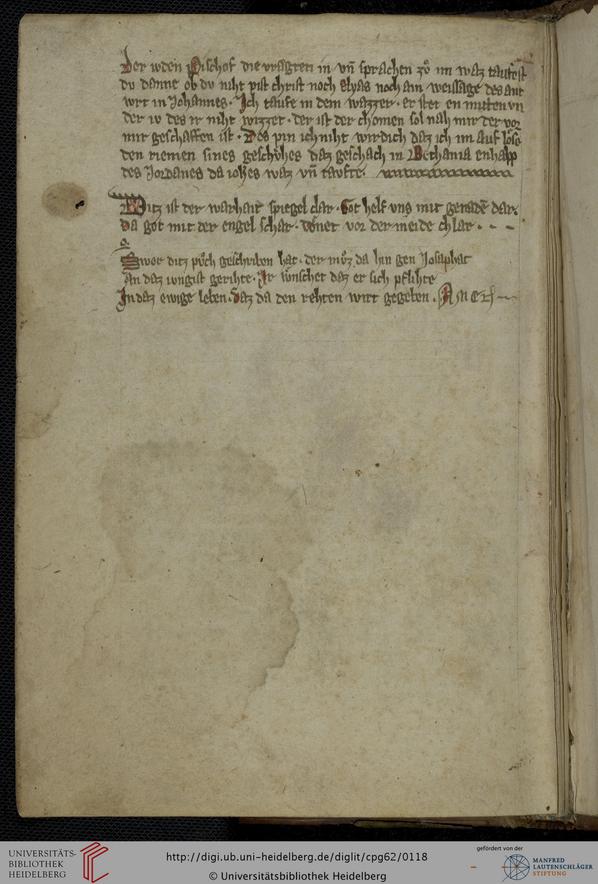 Der ivden pischof die vragten in vn̄ sprachen zů im waz taufest
dv danne ob dv niht pist christ noch elyas noch ain weissage des ant
wrt in Johannes · Ich taufe in dem wazzer · er stet en mitten vn
der iv des ir niht wizzet · der ist der chomen sol nah mir der vor
mir geschaffen ist · Des pin ich niht wirdich daz ich im auf lose
den riemen sines geschvhes daz geschach in Bethania enhalp
des Jordanes da ioh̄es waz vn̄ taufte
Ditz ist der warhait spiegel clar · Got helf vns mit genadē dar
da got mit der engel schar · wonet vor der meide chlar · – –
Swer ditz pvͦch geschriben hat · der mvͦz da hin gen Josaphat
An daz iungist gerihte · Ir wnschet daz er sich pflihte
In daz ewige leben · daz da den rehten wirt gegeben · Amen
UNIVERSITÄTS-
BIBLIOTHEK
HEIDELBERG
http://digi.ub.uni-heidelberg.de/diglit/cpg62/0118
© Universitätsbibliothek Heidelberg
gefördert von der
MANFRED
LAUTENSCHLÄGER
STIFTUNG